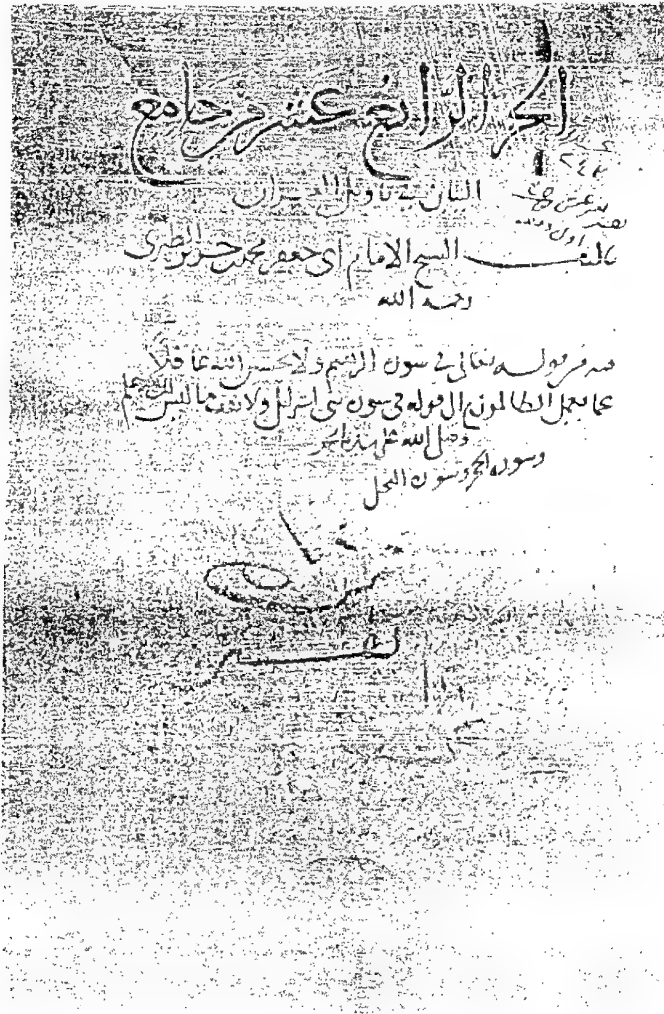 الجزء الرابع عشر من جامع
البيان في تاويل القران
٢٤٢
تاليف الشيخ الامام ابي جعفر محمد بن جرير الطبري
رحمه الله
فيه من قوله تعالى في سورة ابرهيم ولا تحسبن الله غافلا
عما يعمل الظالمون الى قوله في سورة بني اسرائيل ولا تقف ما ليس لك به علم
وسورة الحجر وسورة النحل
تفسير